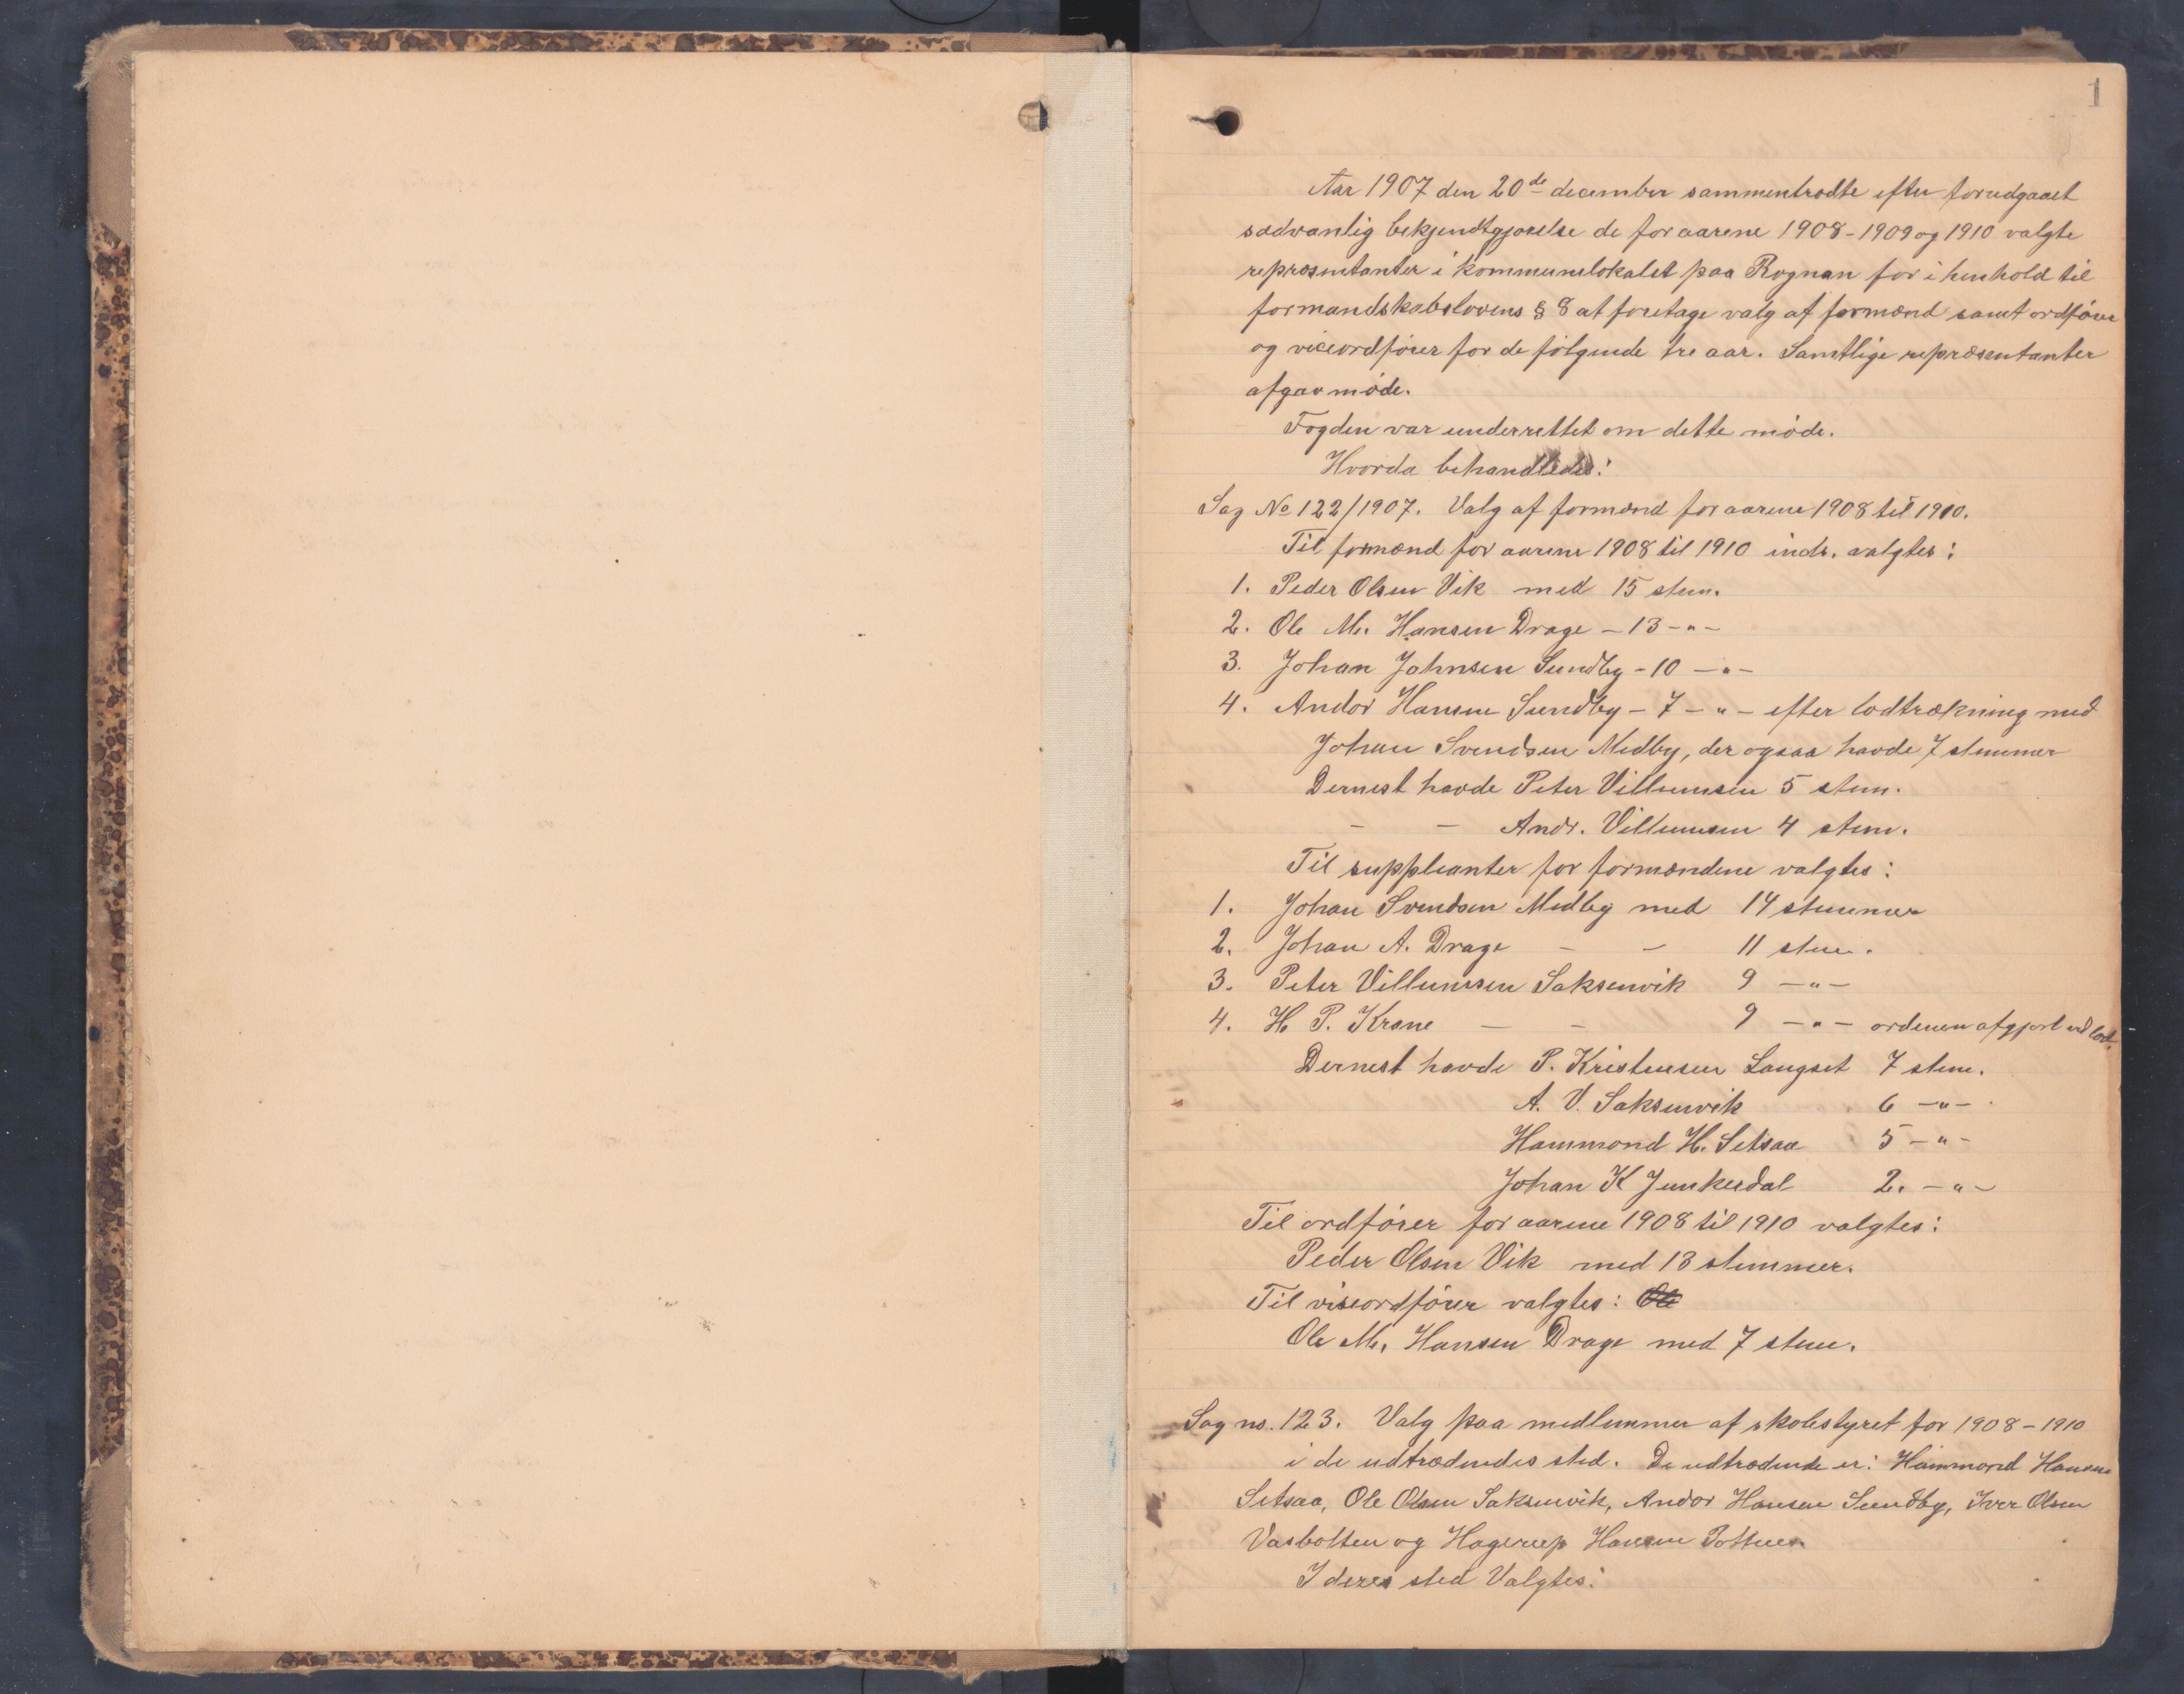 1
Aar 1907 den 20de december sammentrædte efter forudgaaet
sædvanlig bekjendtgjørelse de for aarene 1908-1909 og 1910 valgte
repræsentanter i kommunelokalet paa Rognan for i henhold til
formandskabslovens § 8 at foretage valg af formænd samt ordfører
og viceordfører for de følgende tre aar. Samtlige repræsentanter
afgav møde.
Fogden var underrettet om dette møde.
Hvorda behandledes:
Sag No 122/1907. Valg af formænd for aarene 1908 til 1910.
Til formænd for aarene 1908 til 1910 incl. valgtes:
1. Peder Olsen Vik med 15 stem.
2. Ole M. Hansen Drage - 13 - " -
3. Johan Johnsen Sundby - 10 - " -
4. Andor Hansen Sundby - 7 - " - efter lodtrækning med
Johan Svendsen Medby, der ogsaa havde 7 stemmer
Dernest havde Peter Villumsen 5 stem.
- - Andr. Villumsen 4 stem.
Til suppleanter for formændene valgtes:
1. Johan Svendsen Medby med 14 stemmer
2. Johan A. Drage - - 11 stem.
3. Peter Villumsen Saksenvik 9 - " -
4. H. P. Krane - - 9 - " - ordenen afgjort ved lod.
Dernest havde P. Kristensen Langset 7 stem.
A. V. Saksenvik 6 - " -
Hammond H. Setsaa 5 - " -
Johan K Junkerdal 2. - " -
Til ordfører for aarene 1908 til 1910 valgtes:
Peder Olsen Vik med 13 stemmer.
Til viseordfører valgtes: Ole
Ole M. Hansen Drage med 7 stem.
Sag no. 123. Valg paa medlemmer af skolestyret for 1908-1910
i de udtrædendes sted. De udtrædende er: Hammond Hansen
Setsaa, Ole Olsen Saksenvik, Andor Hansen Sundby, Iver Olsen
Vasbotten og Hagerup Hansen
I deres sted Valgtes: